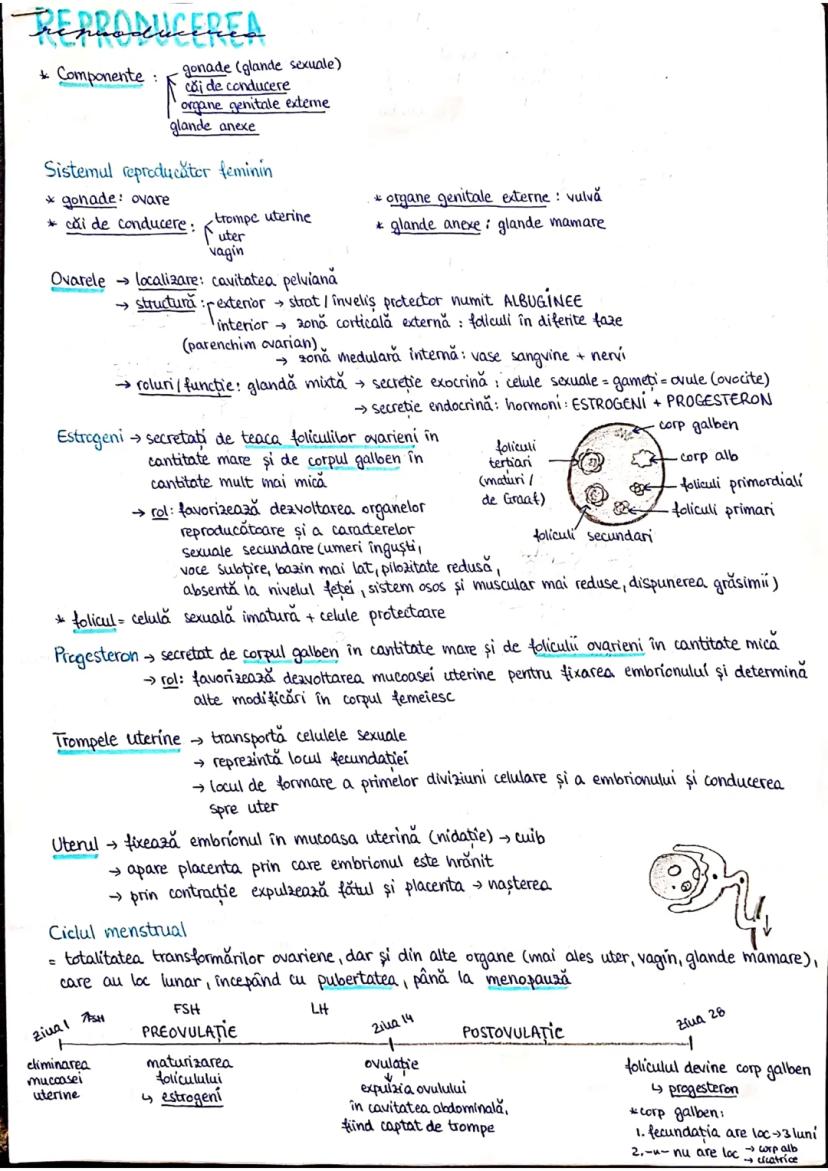 REPRODUCEREA
reproducerea
* Componente : gonade (glande sexuale)
căi de conducere
organe genitale externe
glande anexe
Sistemul reproducător feminin
* gonade: ovare
* organe genitale externe : vulvă
* căi de conducere : trompe uterine
uter
vagin
* glande anexe : glande mamare
Ovarele → localizare: cavitatea pelviană
→ structură : exterior → strat / înveliș protector numit ALBUGINEE
interior → zonă corticală externă : foliculi în diferite faze
(parenchim ovarian)
→ zonă medulară internă: vase sangvine + nervi
→ roluri / funcție: glandă mixtă → secreție exocrină : celule sexuale = gameți = ovule (ovocite)
→ secreție endocrină: hormoni : ESTROGENI + PROGESTERON
Estrogeni → secretați de teaca foliculilor ovarieni în
cantitate mare și de corpul galben în
cantitate mult mai mică
→ rol: favorizează dezvoltarea organelor
reproducătoare și a caracterelor
sexuale secundare (umeri înguști,
voce subțire, bazin mai lat, pilozitate redusă,
absentă la nivelul feței, sistem osos și muscular mai reduse, dispunerea grăsimii)
corp galben
foliculi
tertiari
(maturi /
de Graaf)
corp alb
foliculi primordiali
foliculi primari
foliculi secundari
* folicul = celulă sexuală imatură + celule protectoare
Progesteron → secretat de corpul galben în cantitate mare și de foliculii ovarieni în cantitate mică
→ rol: favorizează dezvoltarea mucoasei uterine pentru fixarea embrionului și determină
alte modificări în corpul femeiesc
Trompele uterine → transportă celulele sexuale
→ reprezintă locul fecundației
→ locul de formare a primelor diviziuni celulare și a embrionului și conducerea
spre uter
Uterul → fixează embrionul în mucoasa uterină (nidație) → cuib
→ apare placenta prin care embrionul este hrănit
→ prin contracție expulzează fătul și placenta → nașterea
Ciclul menstrual
= totalitatea transformărilor ovariene, dar și din alte organe (mai ales uter, vagin, glande mamare),
care au loc lunar, începând cu pubertatea, până la menopauză
ziua 1 ↑FSH FSH LH ziua 14 ziua 28
PREOVULAȚIE POSTOVULAȚIE
eliminarea
mucoasei
uterine
maturizarea
foliculului
↳ estrogeni
ovulație
↓
expulzia ovulului
în cavitatea abdominală,
fiind captat de trompe
foliculul devine corp galben
↳ progesteron
* corp galben:
1. fecundația are loc → 3 luni
2. -u- nu are loc → corp alb
→ cicatrice